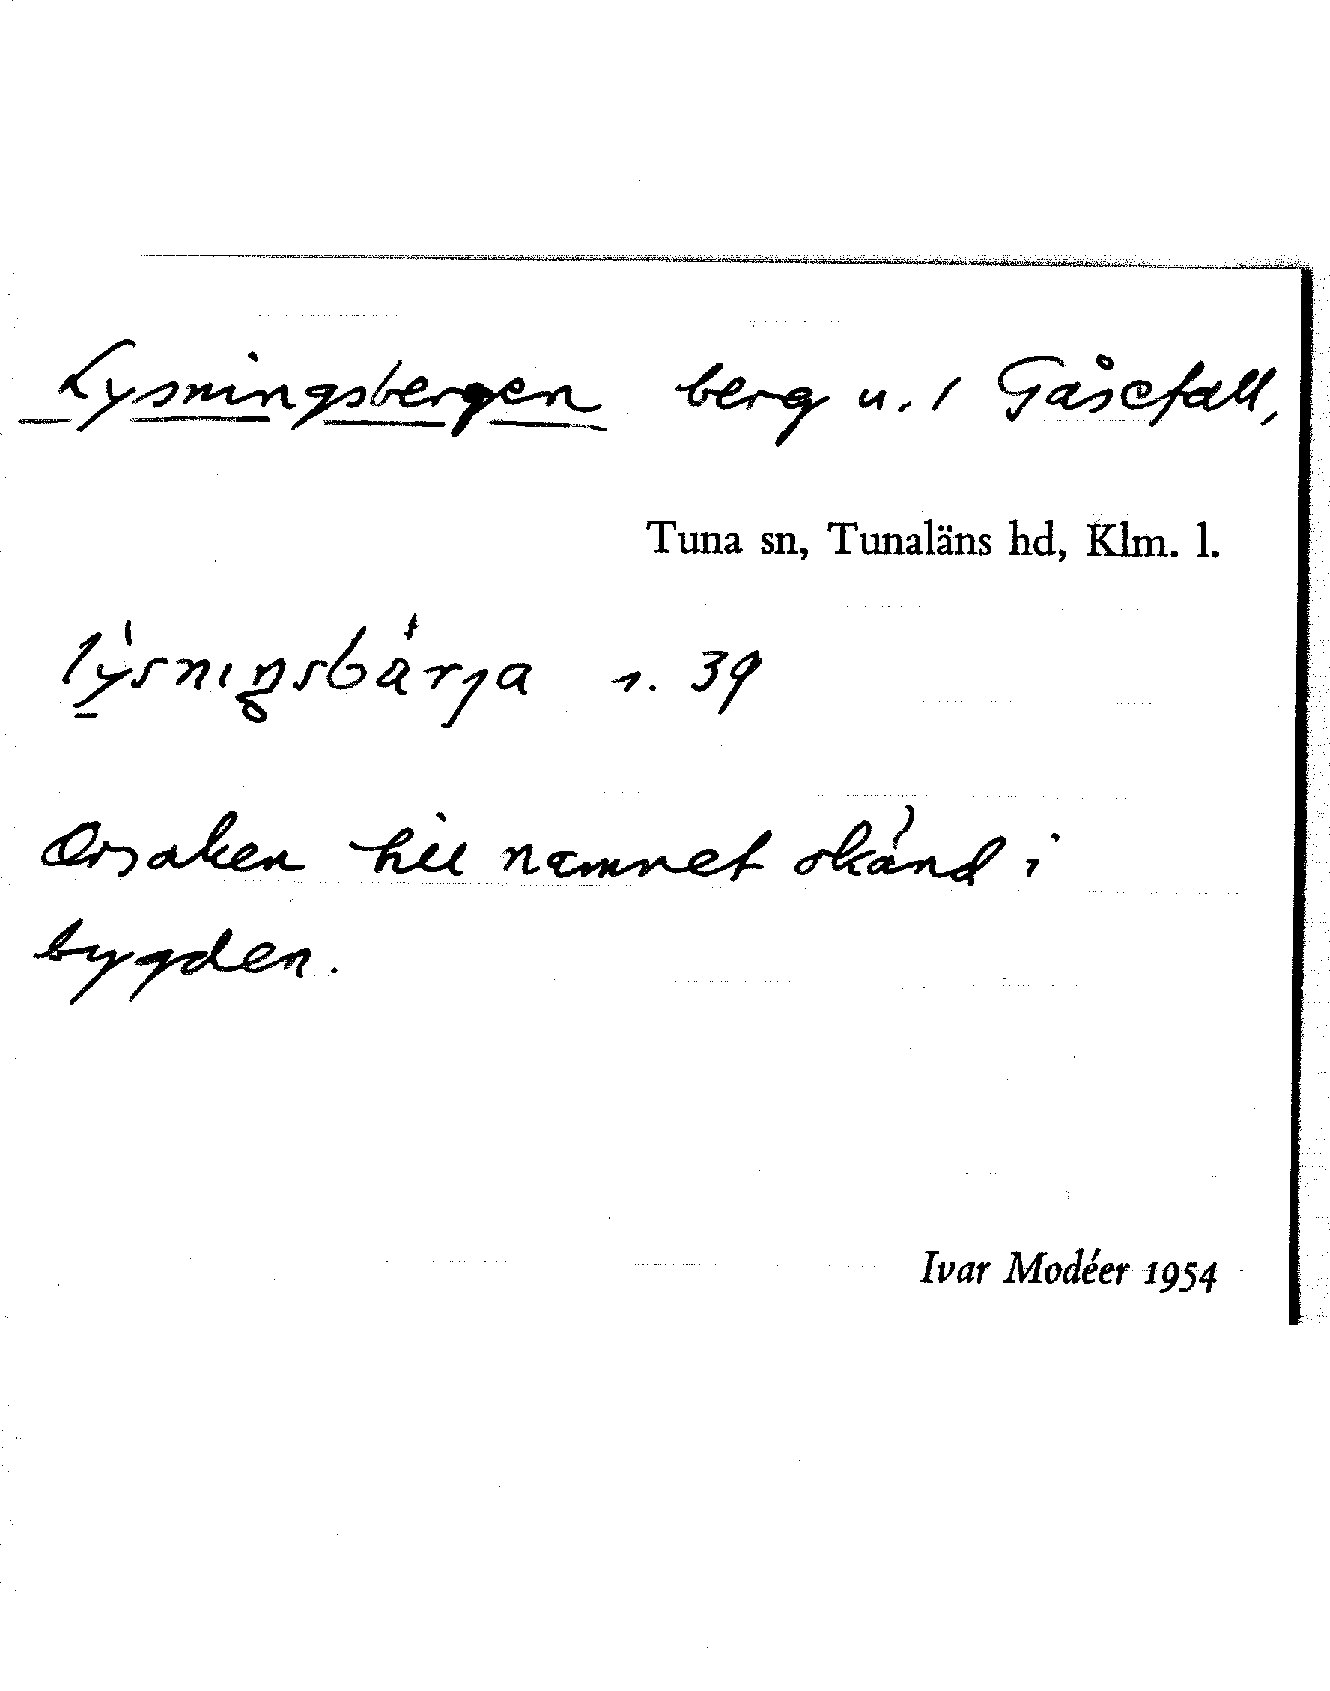 Lysningsbergen berg u. 1 Gåsefall,
Tuna sn, Tunaläns hd, Klm. l.
lýsnıŋsbärja s. 39
Orsaken till namnet okänd i
bygden.
Ivar Modéer 1954